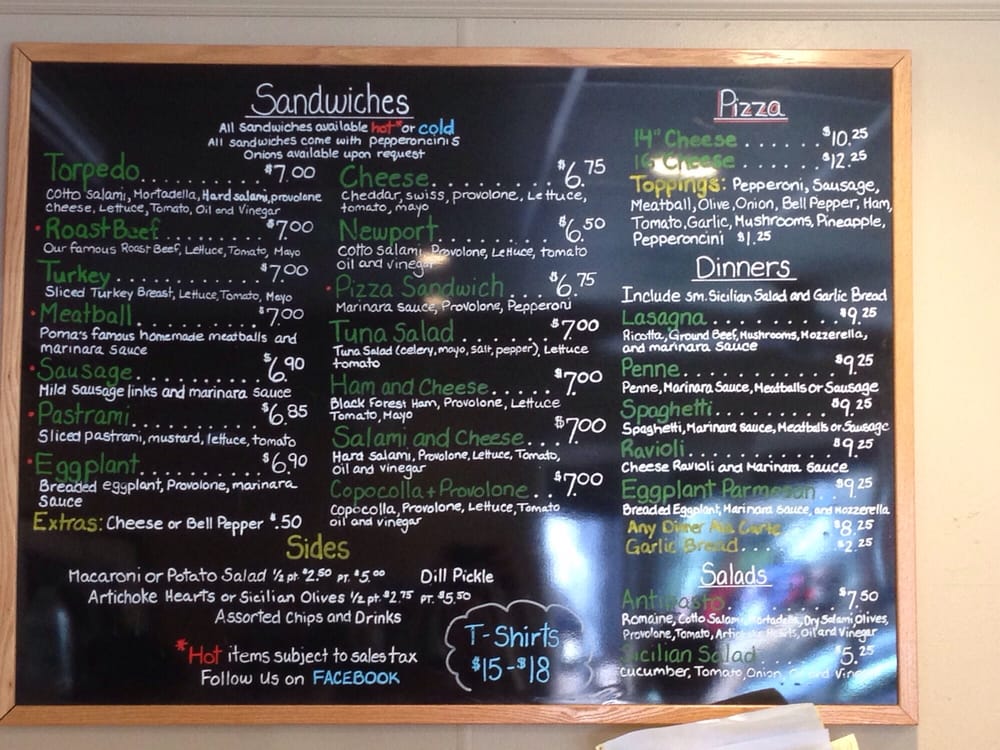 Sandwiches
All sandwiches available hot* or cold
All sandwiches come with pepperoncinis
Onions available upon request
Torpedo........... $7.00
Cotto Salami, Mortadella, Hard salami, provolone
cheese, Lettuce, Tomato, Oil and Vinegar
• Roast Beef........... $7.00
Our famous Roast Beef, Lettuce, Tomato, Mayo
Turkey........... $7.00
Sliced Turkey Breast, Lettuce, Tomato, Mayo
• Meatball........... $7.00
Poma's famous homemade meatballs and
marinara sauce
• Sausage........... $6.90
Mild Sausage links and marinara sauce
• Pastrami........... $6.85
Sliced pastrami, mustard, lettuce, tomato
• Eggplant........... $6.90
Breaded eggplant, Provolone, marinara
sauce
Extras: Cheese or Bell Pepper $.50
Cheese........... $6.75
Cheddar, swiss, provolone, Lettuce,
tomato, mayo
Newport........... $6.50
Cotto Salami, Provolone, Lettuce, tomato
oil and vinegar
• Pizza Sandwich..... $6.75
Marinara Sauce, Provolone, Pepperoni
Tuna Salad........ $7.00
Tuna Salad (celery, mayo, salt, pepper), Lettuce
tomato
Ham and Cheese..... $7.00
Black Forest Ham, Provolone, Lettuce
Tomato, Mayo
Salami and Cheese... $7.00
Hard Salami, Provolone, Lettuce, Tomato,
oil and vinegar
Copocolla + Provolone.. $7.00
Copocolla, Provolone, Lettuce, Tomato
oil and vinegar
Sides
Macaroni or Potato Salad ½ pt $2.50 PT. $5.00 Dill Pickle
Artichoke Hearts or Sicilian Olives ½ pt. $2.75 PT. $5.50
Assorted Chips and Drinks
*Hot items subject to sales tax
Follow Us on FACEBOOK
T-Shirts
$15-$18
Pizza
14" Cheese....... $10.25
16" Cheese....... $12.25
Toppings: Pepperoni, Sausage,
Meatball, Olive, Onion, Bell Pepper, Ham,
Tomato, Garlic, Mushrooms, Pineapple,
Pepperoncini $1.25
Dinners
Include sm. Sicilian Salad and Garlic Bread
Lasagna........... $9.25
Ricotta, Ground Beef, Mushrooms, Mozzerella,
and marinara sauce
Penne........... $9.25
Penne, Marinara Sauce, Meatballs or Sausage
Spaghetti........... $9.25
Spaghetti, Marinara Sauce, Meatballs or Sausage
Ravioli........... $9.25
Cheese Ravioli and Marinara Sauce
Eggplant Parmesan.. $9.25
Breaded Eggplant, Marinara Sauce, and Mozzerella
Any Dinner Ala Carte $8.25
Garlic Bread.... $2.25
Salads
Antipasto........ $7.50
Romaine, Cotto Salami, Mortadella, Dry Salami, olives,
Provolone, Tomato, Artichoke Hearts, Oil and Vinegar
Sicilian Salad...... $5.25
Cucumber, Tomato, Onion, and